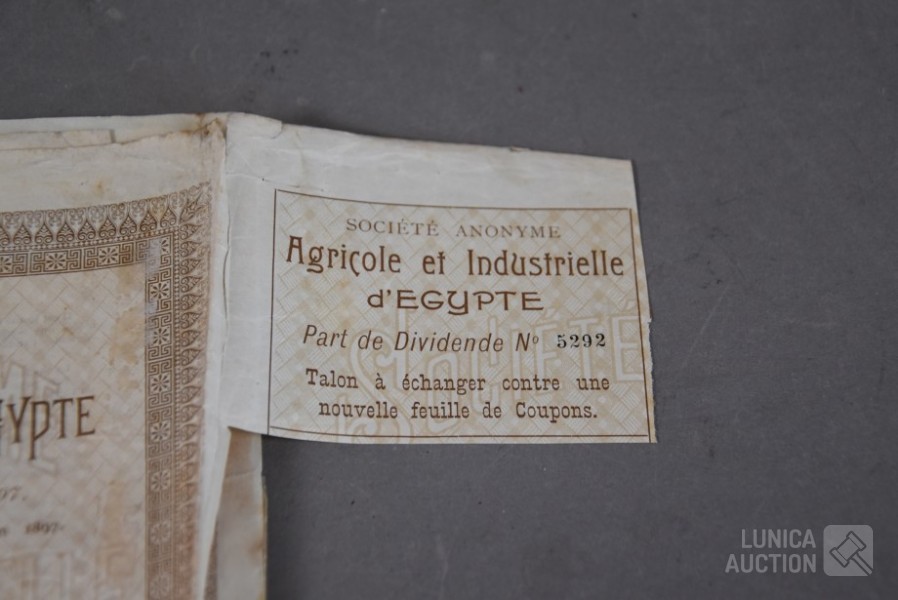 SOCIÉTÉ ANONYME
Agricole et Industrielle
d'EGYPTE
Part de Dividende Nº 5292
Talon à échanger contre une
nouvelle feuille de Coupons.
YPTE
97.
1897.
LUNICA
AUCTION